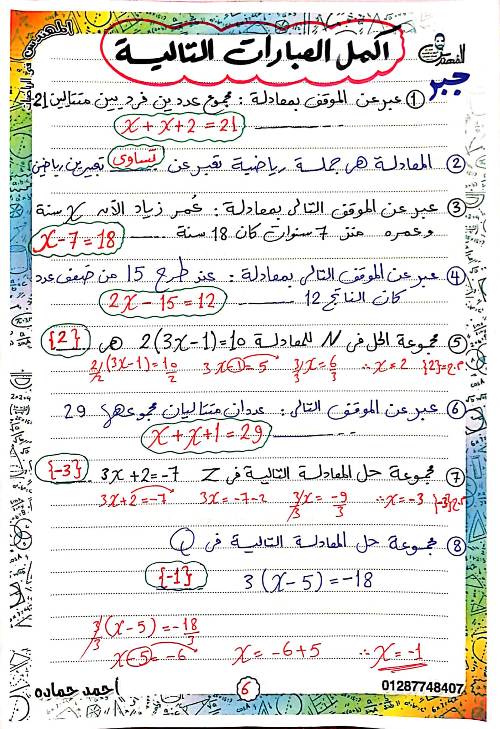 المهندس في الرياضيات
أكمل العبارات التالية
جبر
① عبر عن الموقف بمعادلة : مجموع عددين فرديين متتاليين 21
x + x + 2 = 21
② المعادلة هي جملة رياضية تعبر عن تساوى تعبيرين رياضيين
③ عبر عن الموقف التالى بمعادلة : عمر زياد الآن x سنة
وعمره منذ 7 سنوات كان 18 سنة x - 7 = 18
④ عبر عن الموقف التالى بمعادلة : عند طرح 15 من ضعف عدد
كان الناتج 12 2x - 15 = 12
⑤ مجموعة الحل فى N للمعادلة 2(3x-1)=10 هى {2}
2/2 (3x-1) = 10/2 3x-1=5 3/3 x = 6/3 ∴ x = 2 م.ح={2}
⑥ عبر عن الموقف التالى : عددان متتاليان مجموعهما 29
x + x + 1 = 29
⑦ مجموعة حل المعادلة التالية فى Z 3x+2=-7 {-3}
3x+2=-7 3x=-7-2 3/3 x = -9/3 ∴ x=-3 م.ح={-3}
⑧ مجموعة حل المعادلة التالية فى Q
3(x-5)=-18
{-1}
3/3 (x-5) = -18/3
x-5=-6 x = -6+5 ∴ x = -1
احمد حماده 6 01287748407